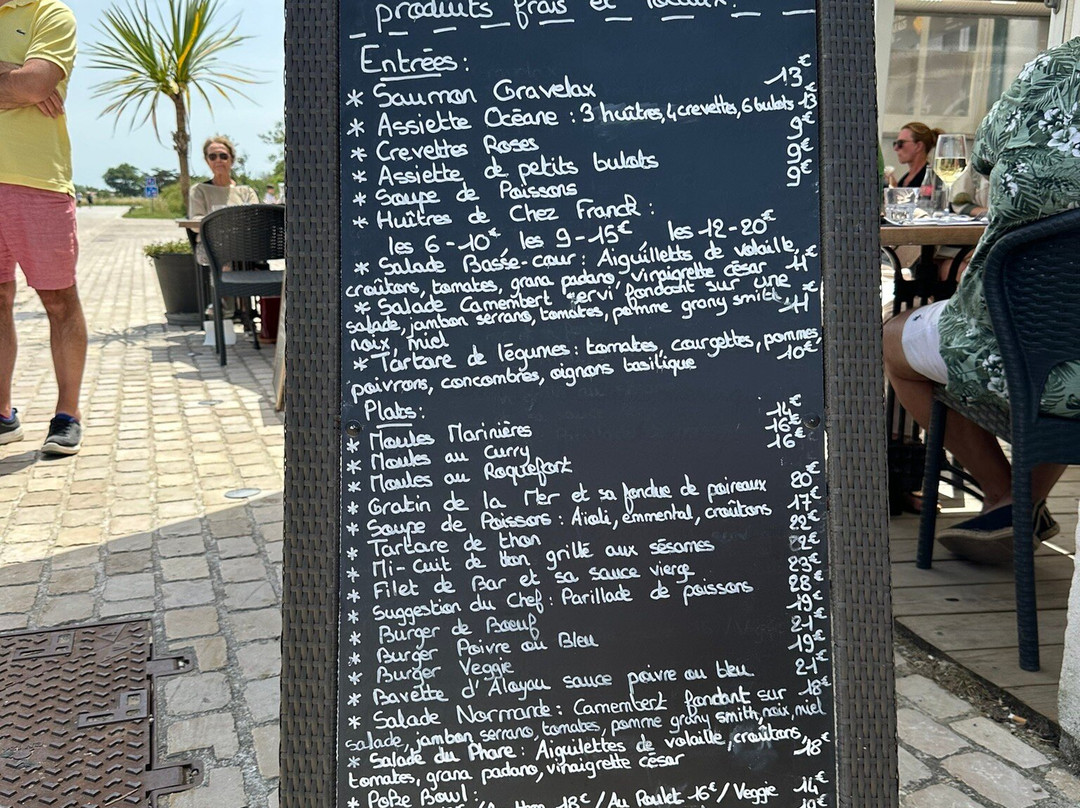 produits frais et locaux.
Entrées :
* Saumon Gravelax 13€
* Assiette Océane : 3 huîtres, 4 crevettes, 6 bulots 13
* Crevettes Roses 9€
* Assiette de petits bulots 9€
* Soupe de Poissons 9€
* Huîtres de Chez Franck :
les 6-10€, les 9-15€ les 12-20€
* Salade Basse-cour : Aiguillettes de volaille,
croûtons, tomates, grana padano, vinaigrette césar 11€
* Salade Camembert servi fondant sur une
salade, jambon serrano, tomates, pomme grany smith, 11€
noix, miel
* Tartare de légumes : tomates, courgettes, pommes,
poivrons, concombres, oignons basilique 10€
Plats :
* Moules Marinières 14€
* Moules au Curry 16€
* Moules au Roquefort 16€
* Gratin de la Mer et sa fondue de poireaux 20€
* Soupe de Poissons : Aïoli, emmental, croûtons 17€
* Tartare de thon 22€
* Mi-cuit de thon grillé aux sésames 22€
* Filet de Bar et sa sauce vierge 23€
* Suggestion du Chef : Parillade de poissons 28€
* Burger de Boeuf 19€
* Burger Poivre ou Bleu 21€
* Burger Veggie 19€
* Bavette d'Aloyau sauce poivre ou bleu 21€
* Salade Normande : Camembert fondant sur 18€
salade, jambon serrano, tomates, pomme grany smith, noix, miel
* Salade du Phare : Aiguilettes de volaille, croûtons,
tomates, grana padano, vinaigrette césar 18€
* Poke Bowl :
18€ / Au Poulet 16€ / Veggie 14€